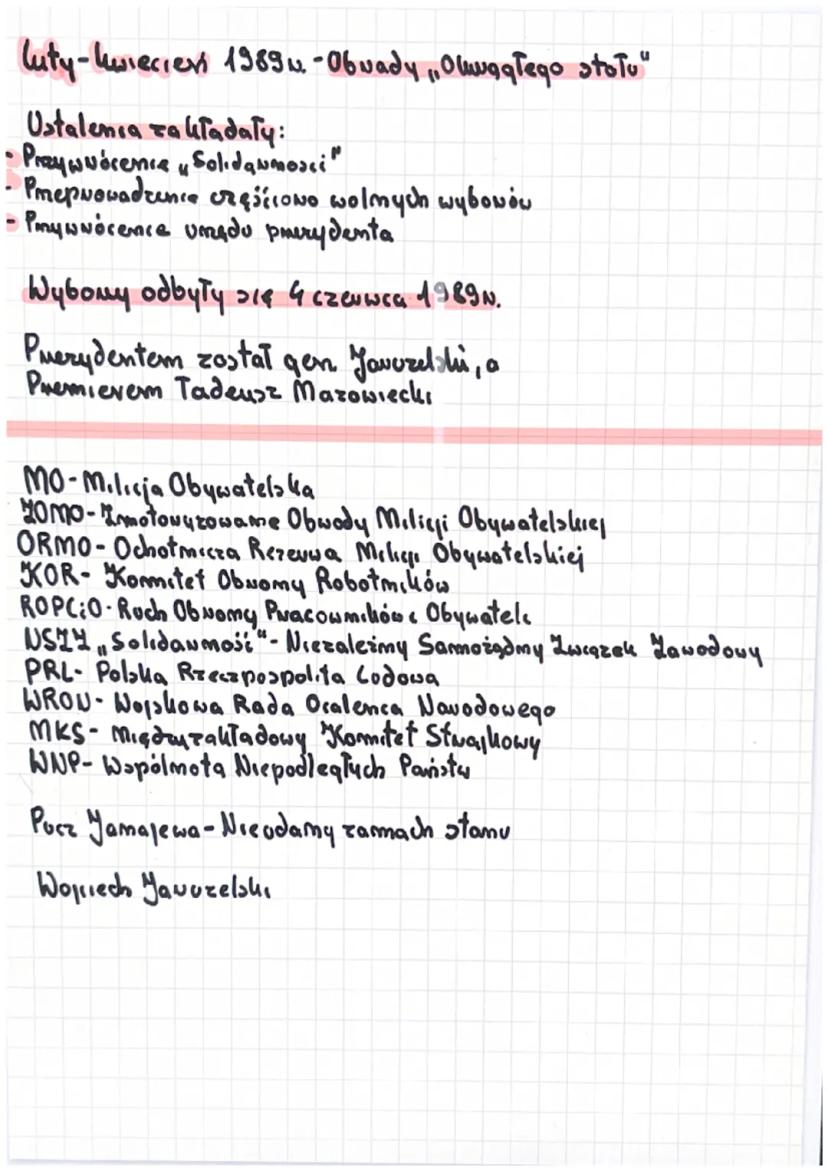 Luty-kwiecień 1989r. - Obrady „Okrągłego stołu"
Ustalenia zakładały:
- Przywrócenie „Solidarności"
- Przeprowadzenie częściowo wolnych wyborów
- Przywrócenie urzędu prezydenta
Wybory odbyły się 4 czerwca 1989r.
Prezydentem został gen Jaruzelski, a
Premierem Tadeusz Mazowiecki
MO - Milicja Obywatelska
ZOMO - Zmotoryzowane Obwody Milicji Obywatelskiej
ORMO - Ochotnicza Rezerwa Milicji Obywatelskiej
KOR - Komitet Obrony Robotników
ROPCiO - Ruch Obrony Pracowników i Obywateli
NSZZ „Solidarność" - Niezależny Samożądny Związek Zawodowy
PRL - Polska Rzeczpospolita Ludowa
WRON - Wojskowa Rada Ocalenia Narodowego
MKS - Międzyzakładowy Komitet Strajkowy
WNP - Wspólnota Niepodległych Państw
Pucz Jamajewa - Nieudany zamach stanu
Wojciech Jaruzelski